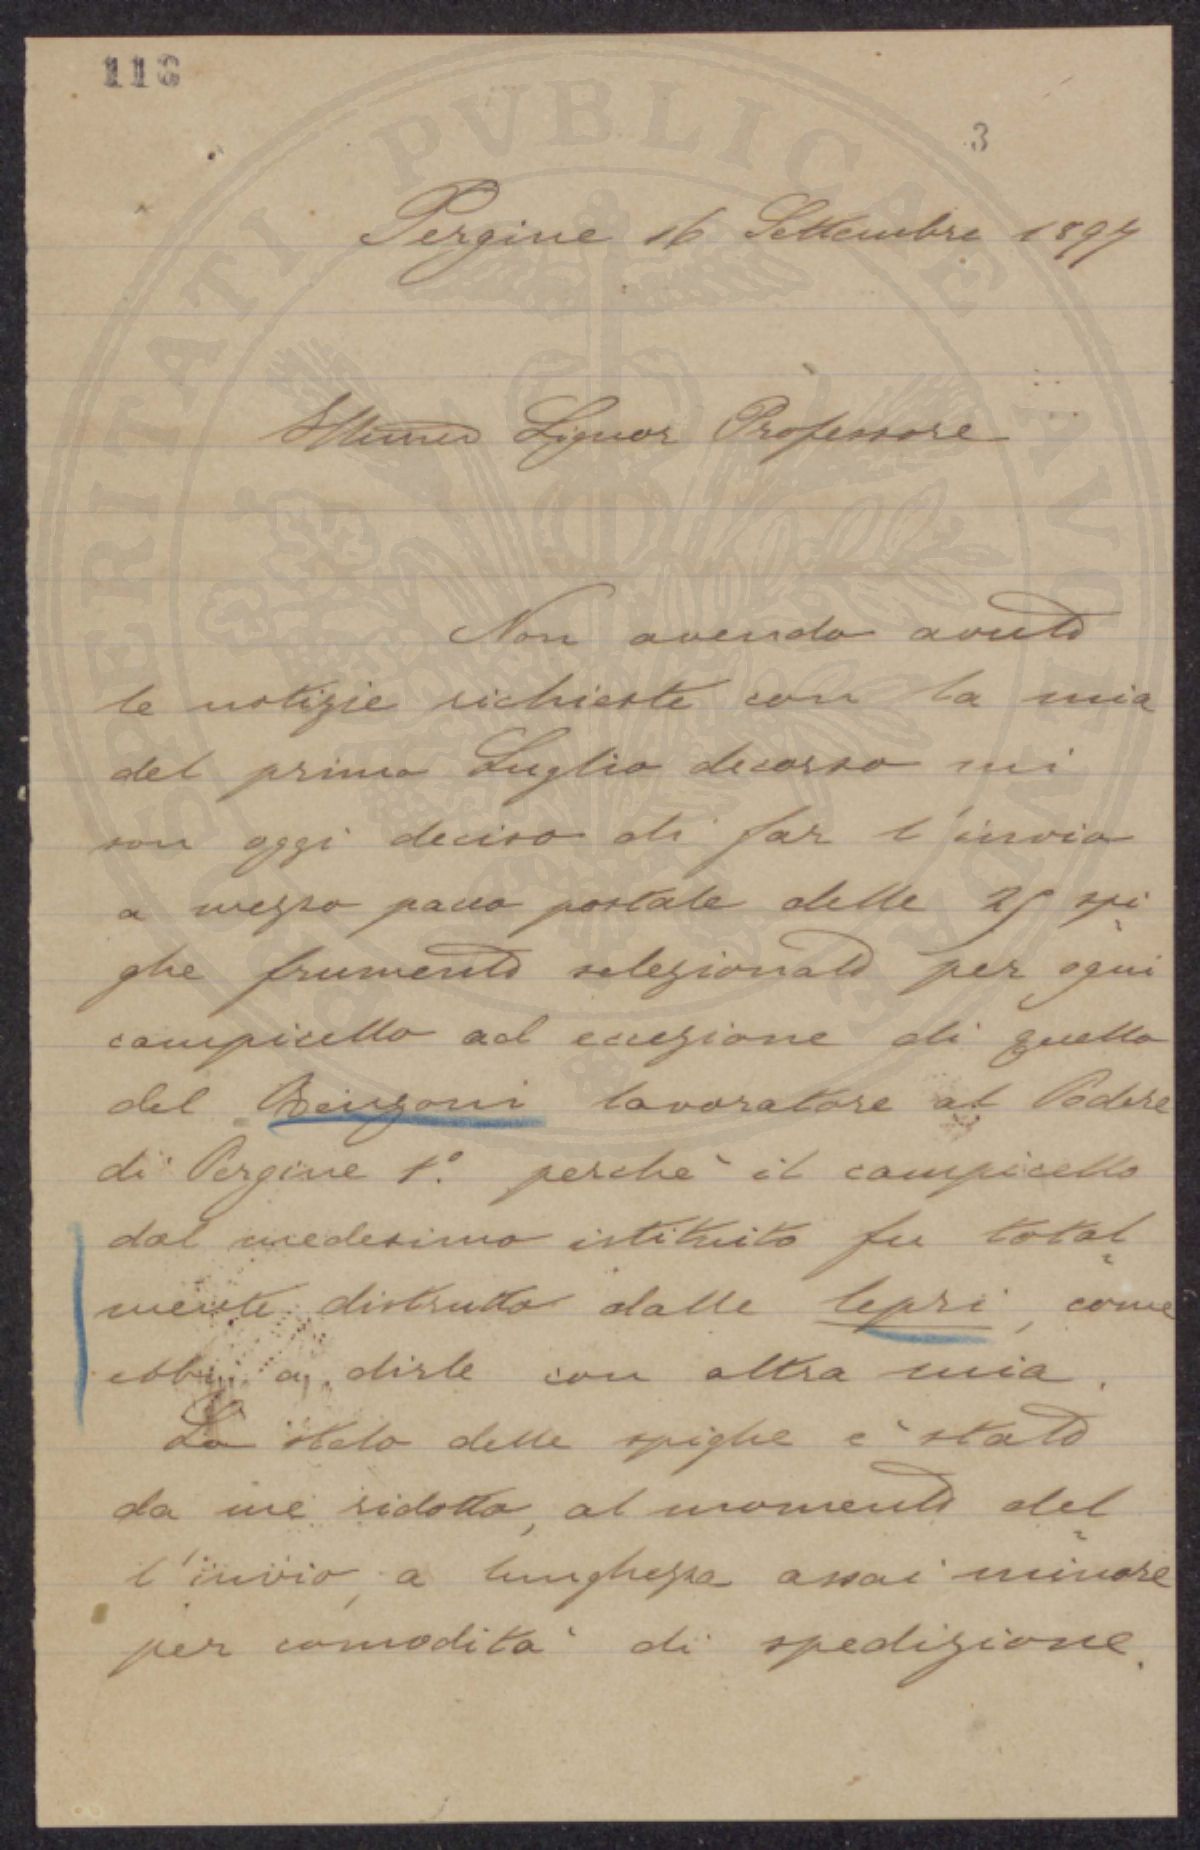 118
3
Pergine 16 Settembre 1897
Illmo Signor Professore
Non avendo avuto
le notizie richieste con la mia
del primo Luglio decorso mi
son oggi deciso di far l'invio
a mezzo pacco postale delle 25 spi
ghe frumento selezionato per ogni
campicello ad eccezione di quello
del lavoratore al Podere
di Pergine 1º. perchè il campicello
dal medesimo istituito fu total
mente distrutto dalle lepri, come
ebbi a dirle con altra mia.
Lo stelo delle spighe è stato
da me ridotto, al momento del
l'invio, a lunghezza assai minore
per comodità di spedizione.
PROSPERITATI PVBLICAE AVGENDAE